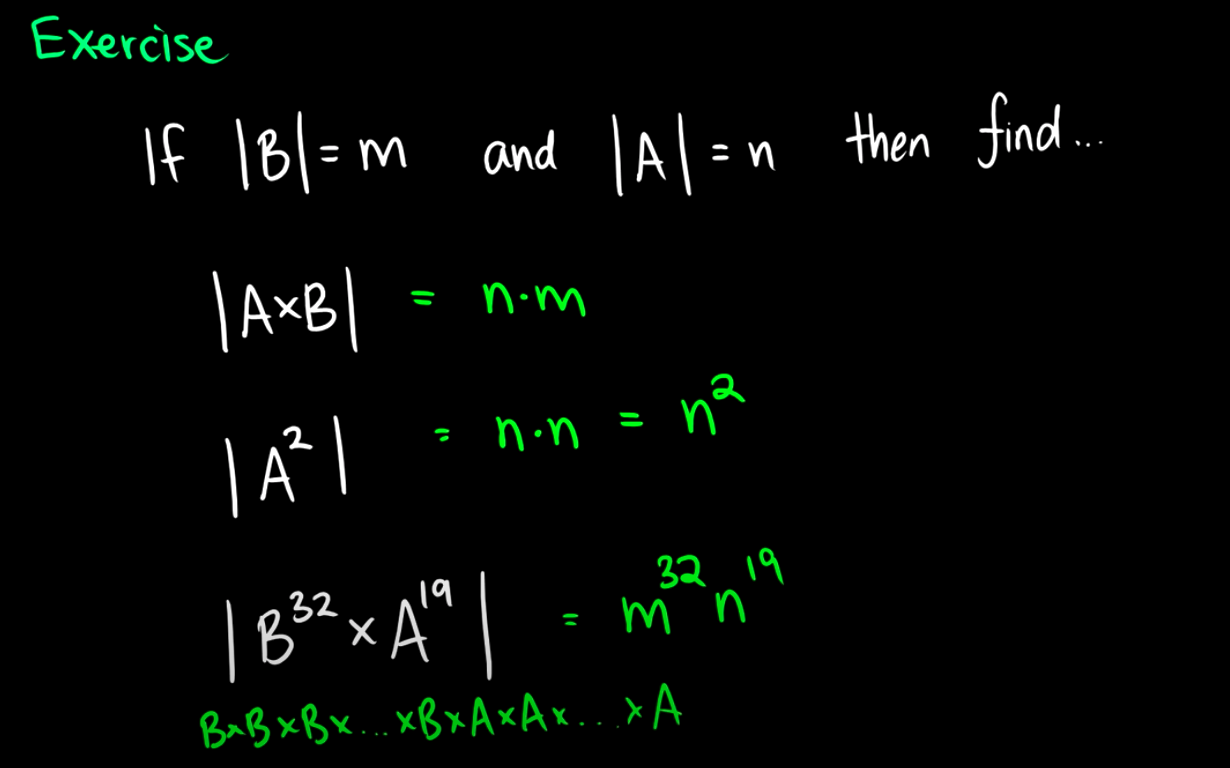 Exercise
If |B| = m and |A| = n then find...
|A×B| = n·m
|A²| = n·n = n²
|B³²×A¹⁹| = m³²n¹⁹
B×B×B×...×B×A×A×...×A